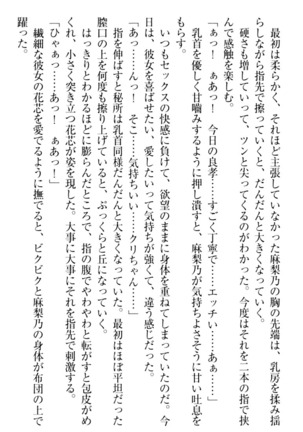 最初は柔らかく、それほど主張していなかった麻梨乃の胸の先端は、乳房を揉み揺
らしながら指先で擦っていくと、だんだんと大きくなっていくのがわかった。
硬さも増していって、ツンと尖ってくるのがわかる。今度はそれを二本の指で挟
んで感触を楽しむ。
「ぁっ！　あぁっ！　今日の良孝……すごく丁寧で……エッチぃ……あぁっ……」
乳首を優しく甘噛みするように押し潰すと、麻梨乃が気持ちよさそうに甘い吐息を
もらす。
いつもセックスの快感に負けて、欲望のままに身体を重ねてしまっていたのだ。今
日は、彼女を喜ばせたい、愛したいって気持ちが強くて、違う感じだった。
「あっ……んっ！　そこ……気持ちいい……クリちゃん……」
指を伸ばすと秘所は乳首同様だんだんと大きくなっていた。最初はほぼ平坦だった
膣口の上を何度も擦り上げていると、ぷっくらと丘になっていく。
はっきりとわかるほどに膨らんだところで、指の腹でやわやわと転がすと包皮がめ
くれ、小さく突き立つ花芯が姿を現した。大事に大事にそれを指先で刺激する。
「ひゃぁっ……あっ！　ぁあっ！」
繊細な彼女の花芯を愛でるように撫でると、ビクビクと麻梨乃の身体が布団の上で
躍った。